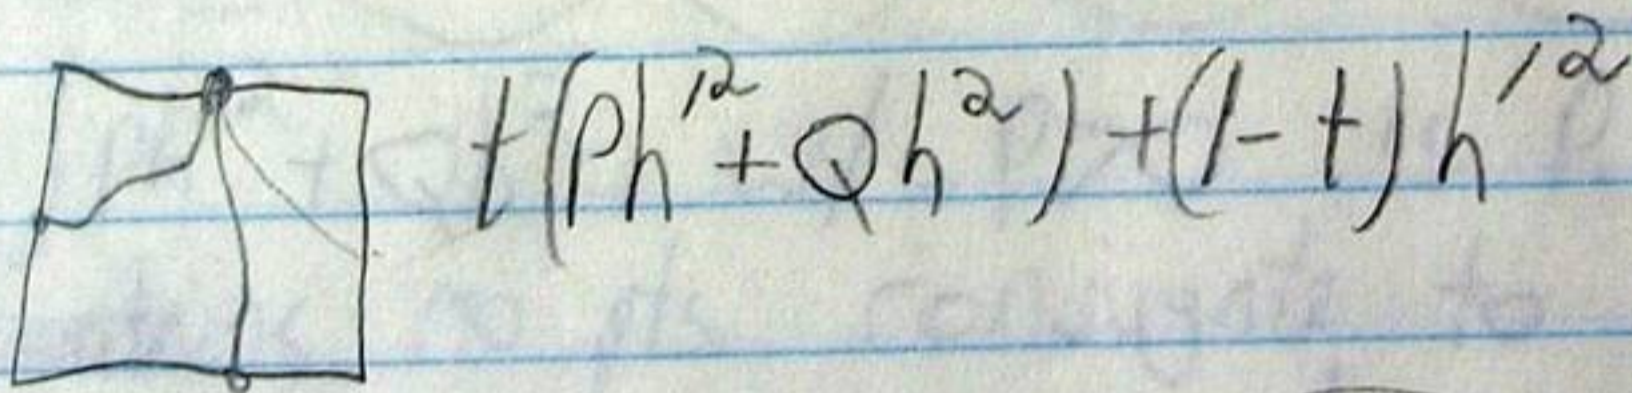 t(Ph'²+Qh²)+(1-t)h'²